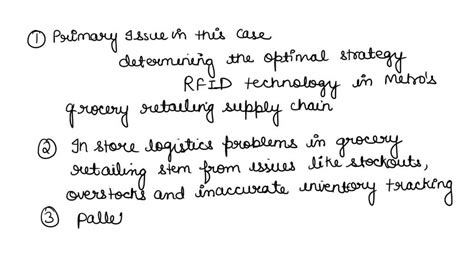 ① Primary Issue in this case
determining the optimal strategy
RFID technology in Metro's
grocery retailing supply chain
② In store logistics problems in grocery
retailing stem from issues like stockouts,
overstocks and inaccurate inventory tracking
③ Palle